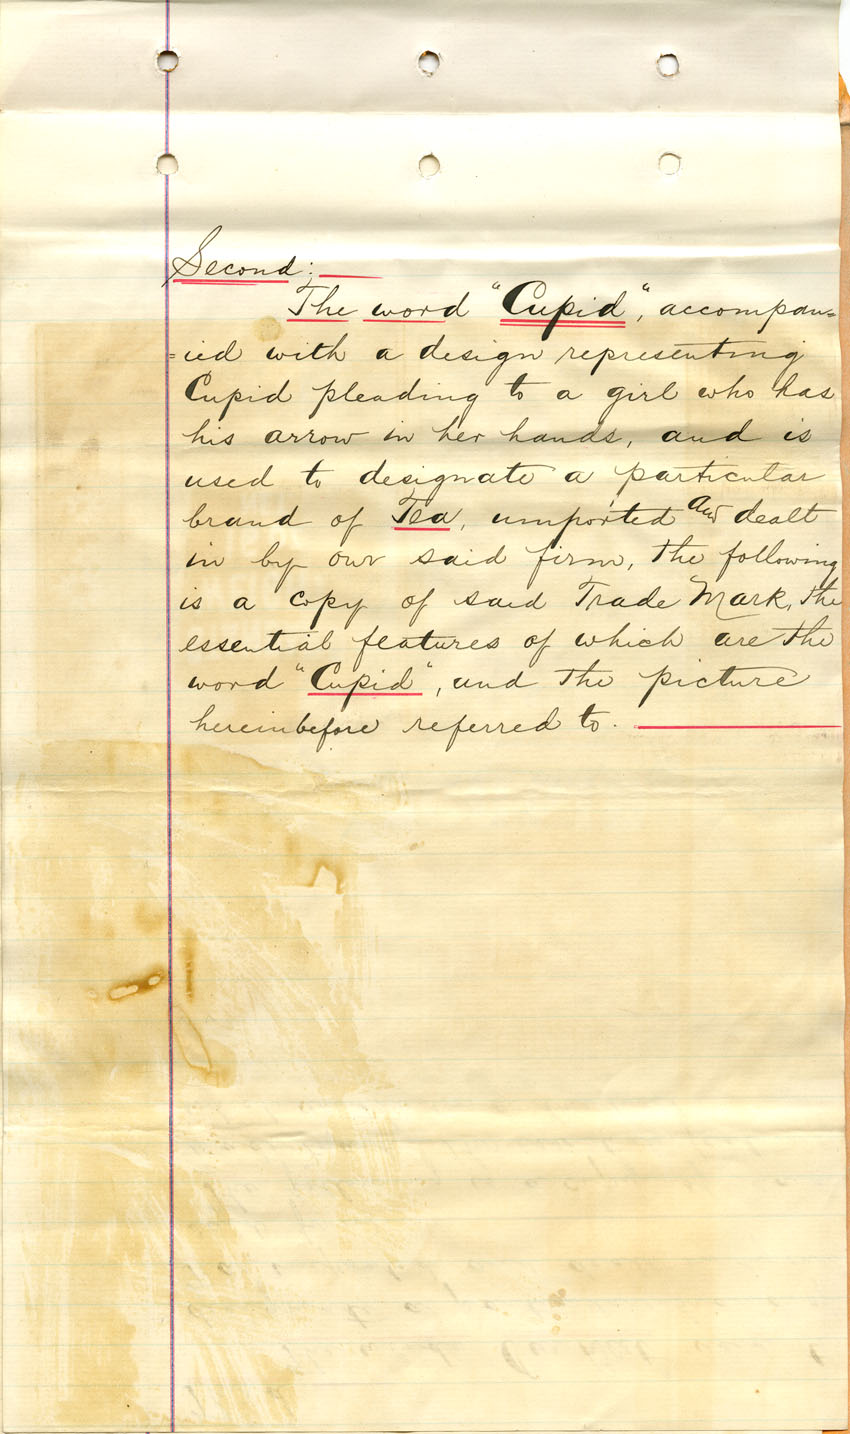 Second:
The word "Cupid", accompan=
=ied with a design representing
Cupid pleading to a girl who has
his arrow in her hands, and is
used to designate a particular
brand of Tea, umported and dealt
in by our said firm, the following
is a copy of said Trade Mark, the
essential features of which are the
word "Cupid", and the picture
hereinbefore referred to.